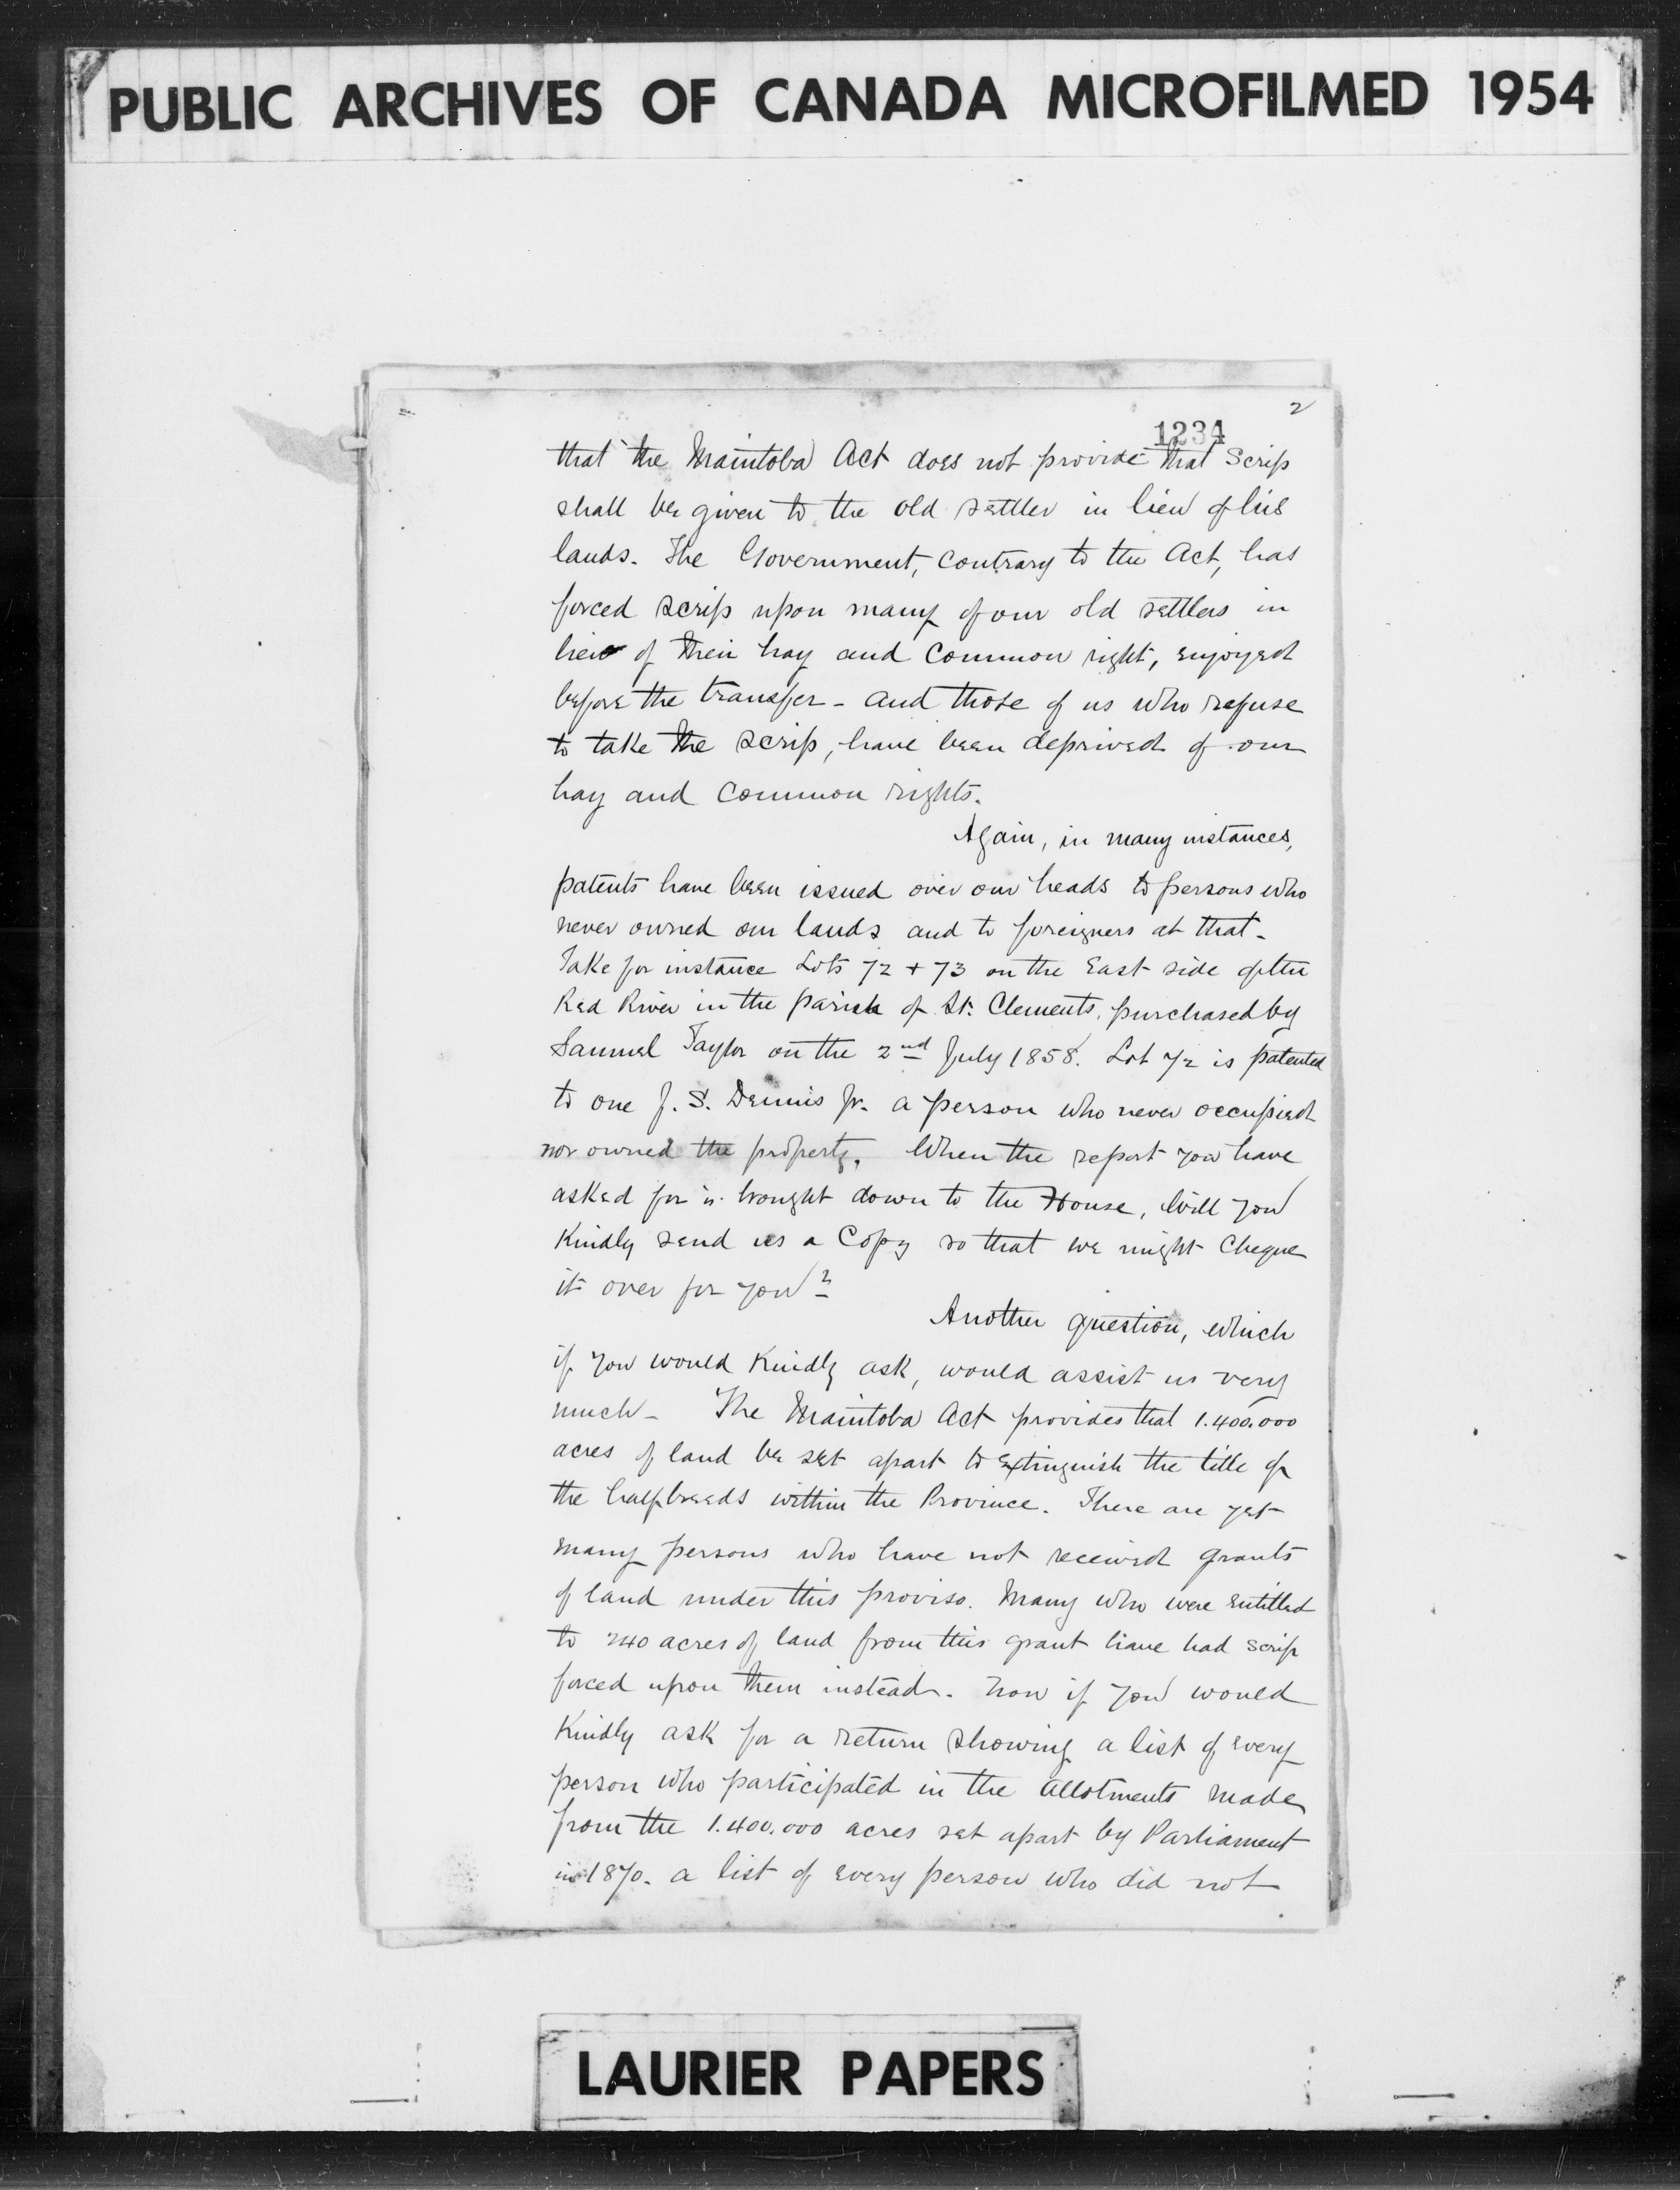 PUBLIC ARCHIVES OF CANADA MICROFILMED 1954
2
1234
that the Manitoba Act does not provide that Scrip
shall be given to the old settler in lieu of his
lands. The Government, contrary to the Act, has
forced scrip upon many of our old settlers in
lieu of their hay and common right, enjoyed
before the transfer - and those of us who refuse
to take the scrip, have been deprived of our
hay and common rights.
Again, in many instances,
patents have been issued over our heads to persons who
never owned our lands and to foreigners at that -
Take for instance Lots 72 + 73 on the East side of the
Red River in the parish of St. Clements, purchased by
Samuel Taylor on the 2nd July 1858. Lot 72 is patented
to one J. S. Dennis Jr. a person who never occupied
nor owned the property. When the report you have
asked for is brought down to the House, will you
Kindly send us a Copy so that we might Cheque
it over for you?
Another question, which
if you would Kindly ask, would assist us very
much - The Manitoba Act provides that 1.400.000
acres of land be set apart to extinguish the title of
the halfbreeds within the Province. There are yet
many persons who have not received grants
of land under this proviso. Many who were entitled
to 240 acres of land from this grant have had scrip
forced upon them instead. Now if you would
Kindly ask for a return showing a list of every
person who participated in the allotments made
from the 1.400.000 acres set apart by Parliament
in 1870. a list of every person who did not
LAURIER PAPERS